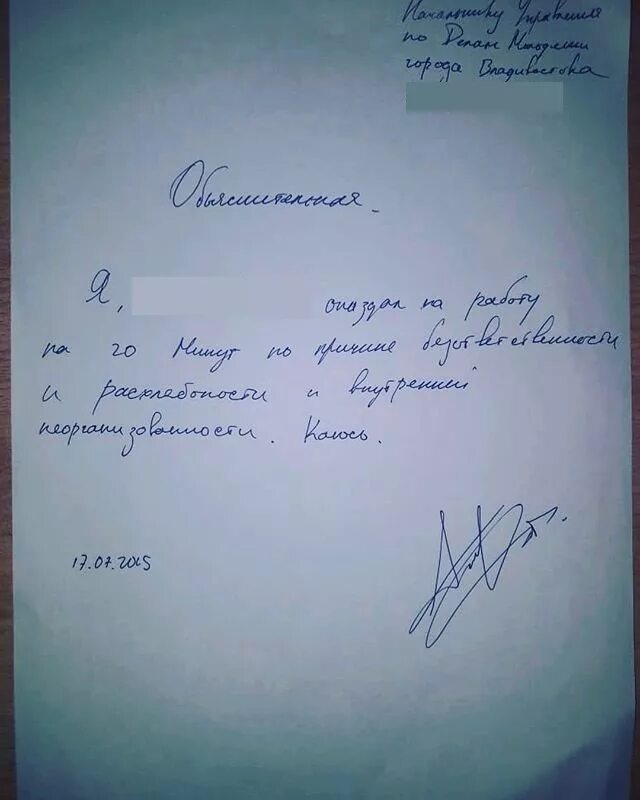 Начальнику Управления
по Делам Молодежи
города Владивостока
Объяснительная
Я, опоздал на работу
на 20 минут по причине безответственности
и расхлебоности и внутренней
неорганизованности. Каюсь.
17.07.2015